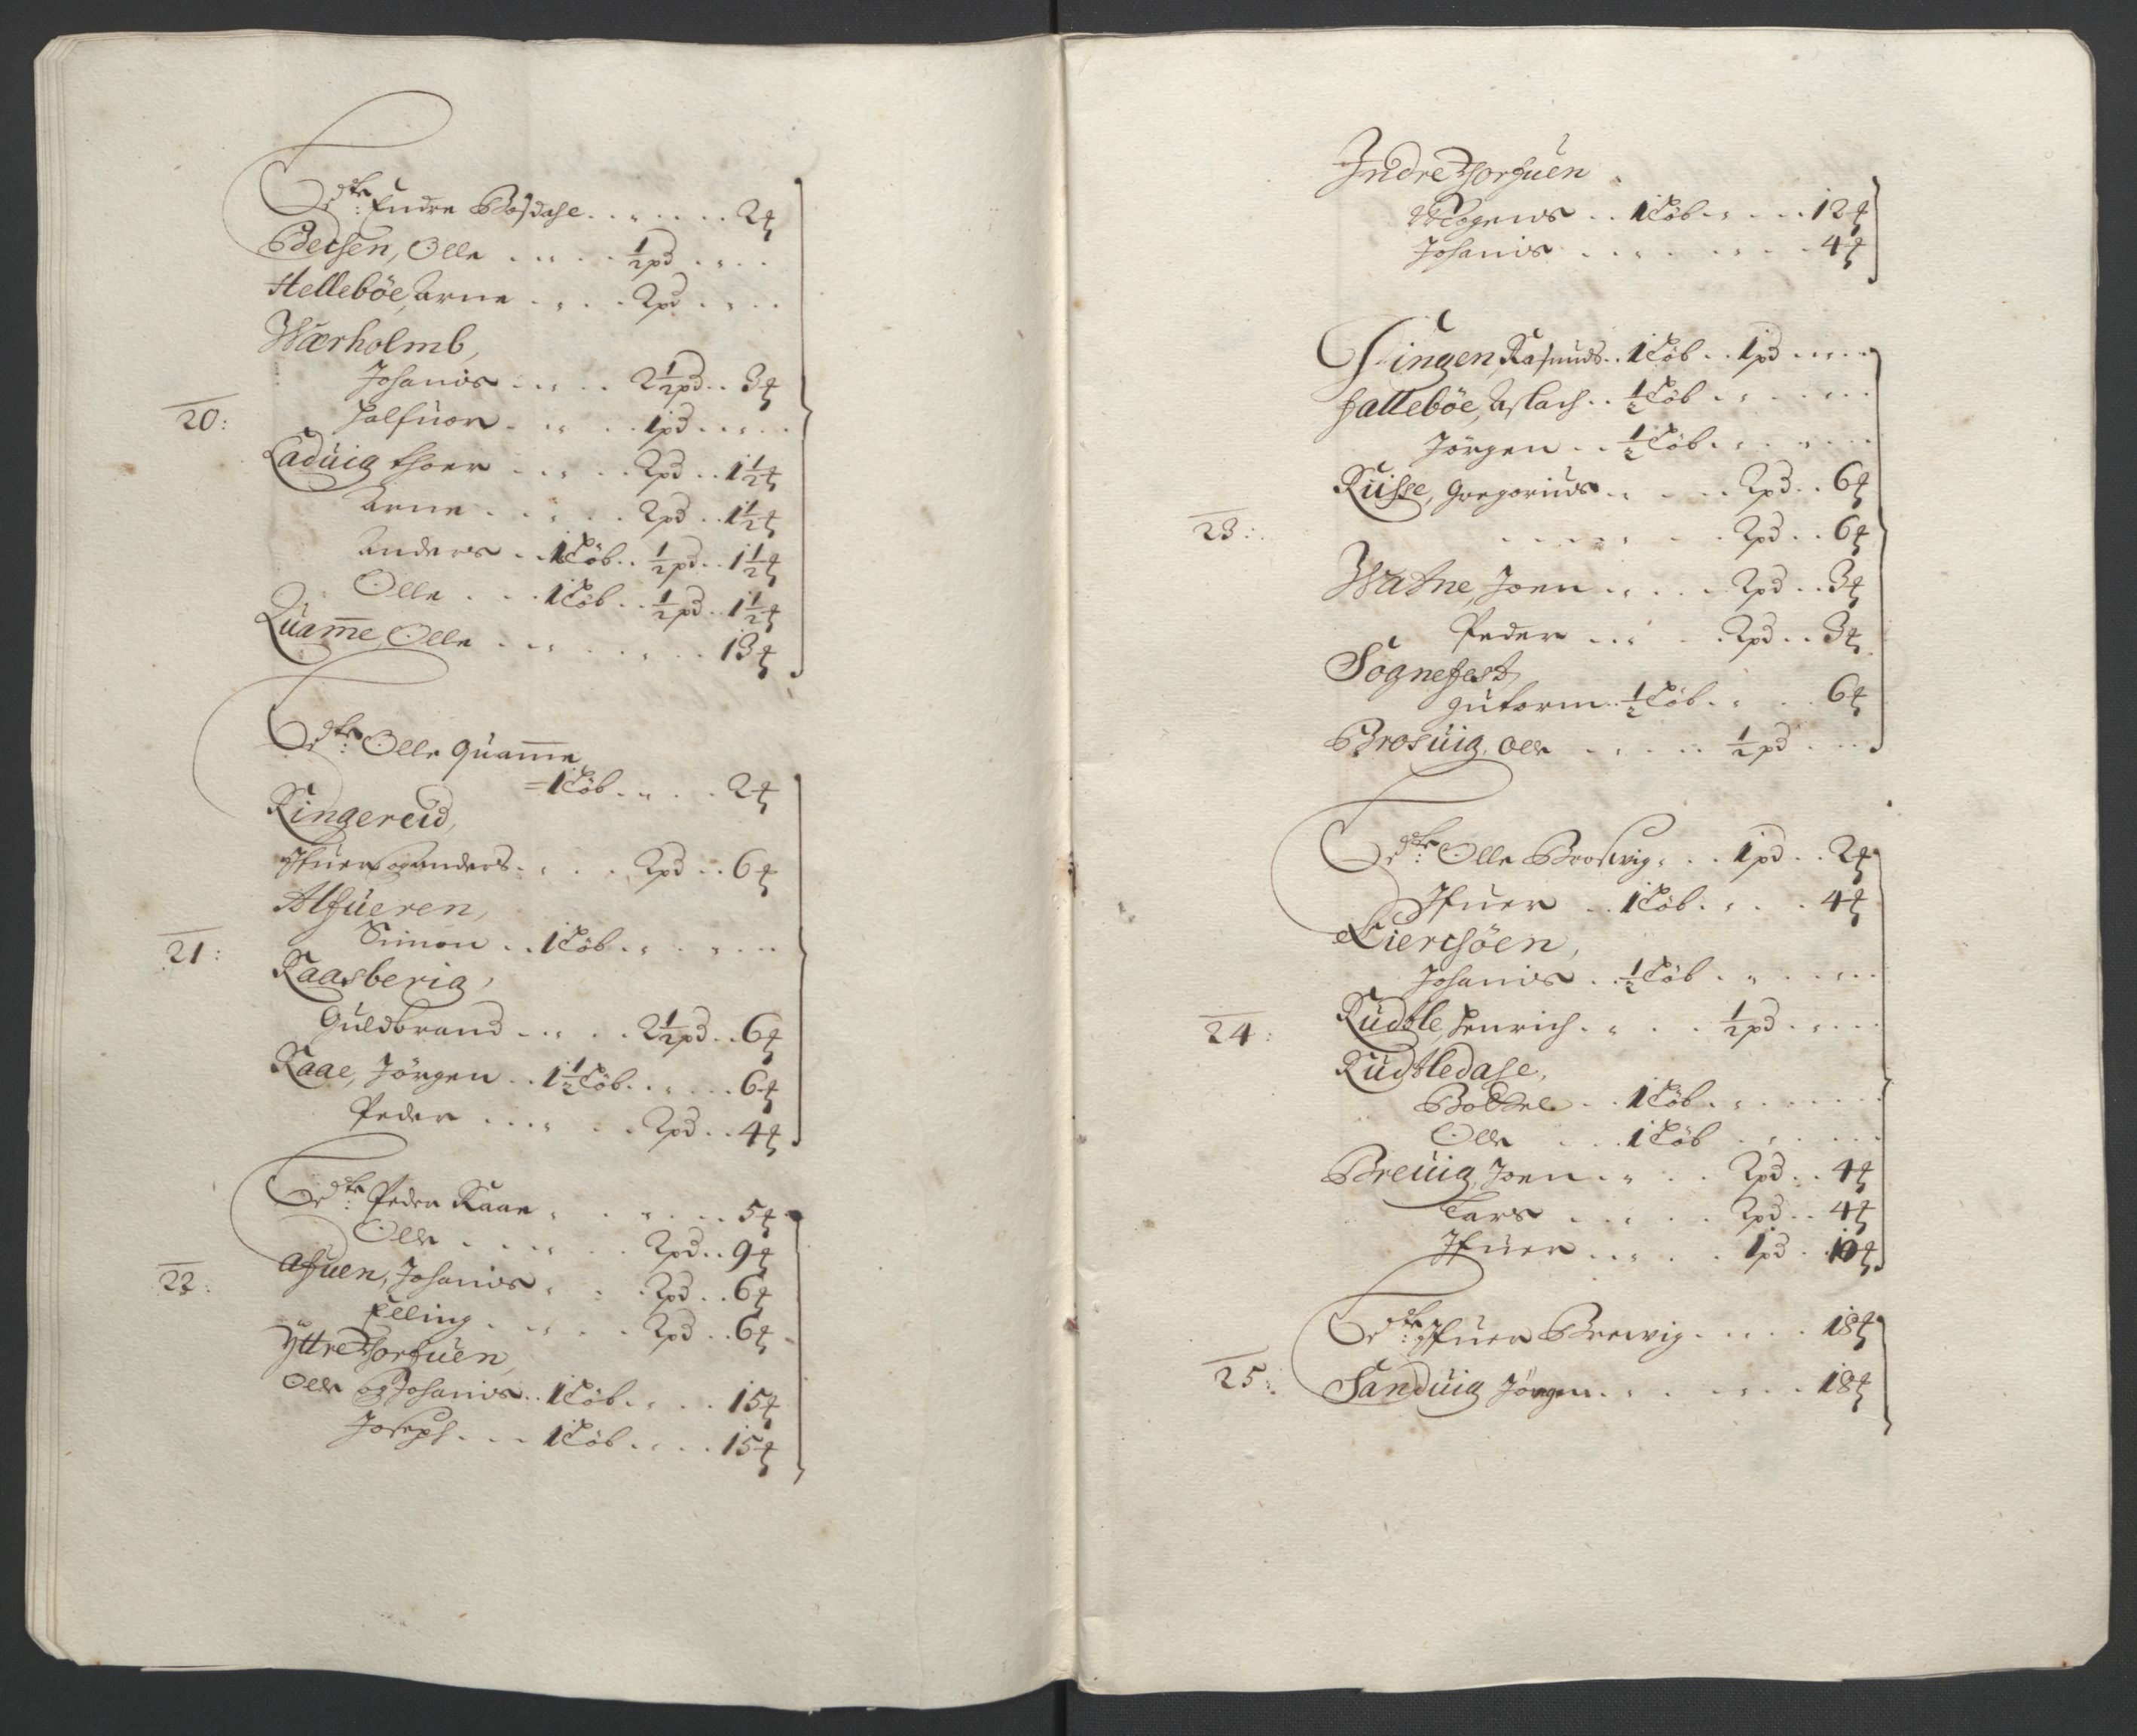 Ordtr: Endre Bosdahl . . . . . 2 ₰
Bersen, Olle . . . . ½ pd . . .
Hellebøe, Arne . . . 2 pd . . .
Wærholmb,
Johanis . . . . 2½ pd . . 3 ₰
20: Halfuor . . . 1 pd . . . .
Laduig Thoer . . . . 2 pd . . 1½ ₰
Arne . . . . . 2 pd . . 1½ ₰
Anders . . 1 Løb . . ½ pd . . 1½ ₰
Olle . . . 1 Løb . . ½ pd . . 1½ ₰
Quame, Olle . . . . . . 13 ₰
Olle Quame
= 1 Løb . . . . 2 ₰
Ringereid,
Ifuer og Anders . . . . 2 pd . . 6 ₰
Alfueren,
21: Simon . . 1 Løb . . . . .
Raasberig,
Guldbrand . . . . 2½ pd . . 6 ₰
Raae, Jørgen . . 1½ Løb . . . . 6 ₰
Peder . . . . . 2 pd . . 4 ₰
Peder Raae . . . . . 5 ₰
Olle . . . . . 2 pd . . 9 ₰
22: Afuen, Johanis . . . 2 pd . . 6 ₰
Elling . . . . 2 pd . . 6 ₰
Yttre Thorfuen,
Olle og Johanis . . 1 Løb . . . . 15 ₰
Joseph . . . 1 Løb . . . . 15 ₰
Indre Thorfuen
Mogens . . 1 Løb . . . . 12 ₰
Johanis . . . . . . . 4 ₰
Rasmus . . 1 Løb . . 1 pd . . . .
Hallebøe, Aslach . . ½ Løb . . . . .
Jørgen . . ½ Løb . . . . .
Risse, Gregorius . . . . 2 pd . . 6 ₰
23: . . . . . . . 2 pd . . 6 ₰
Watne, Joen . . . . 2 pd . . 3 ₰
Peder . . . . 2 pd . . 3 ₰
Sognefest,
Gutorm . . ½ Løb . . . . 6 ₰
Brosuig, Olle . . . . ½ pd . . .
Olle Broswig . . . 1 pd . . 2 ₰
Ifuer . . 1 Løb . . . . 4 ₰
Lierchøen,
Johanis . . ½ Løb . . . . .
24: Rudtle, Henrich . . . . ½ pd . . . .
Rudtledahl,
Bottel . . 1 Løb . . . . .
Olle . . . 1 Løb . . . . .
Breuig, Joen . . . . 2 pd . . 4 ₰
Lars . . . . . 2 pd . . 4 ₰
Ifuer . . . . . 1 pd . . 10 ₰
Ifuer Brewig . . . . 18 ₰
25: Sanduig Jørgen . . . . . . 18 ₰